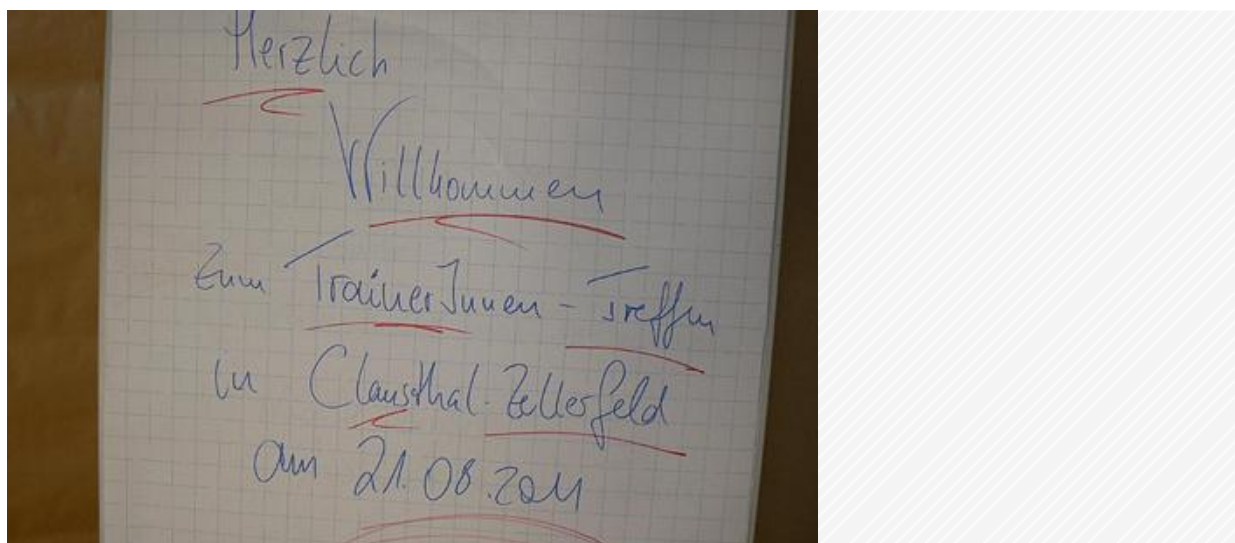 Herzlich
Willkommen
zum TrainerInnen-Treffen
in Clausthal-Zellerfeld
am 21.08.2011